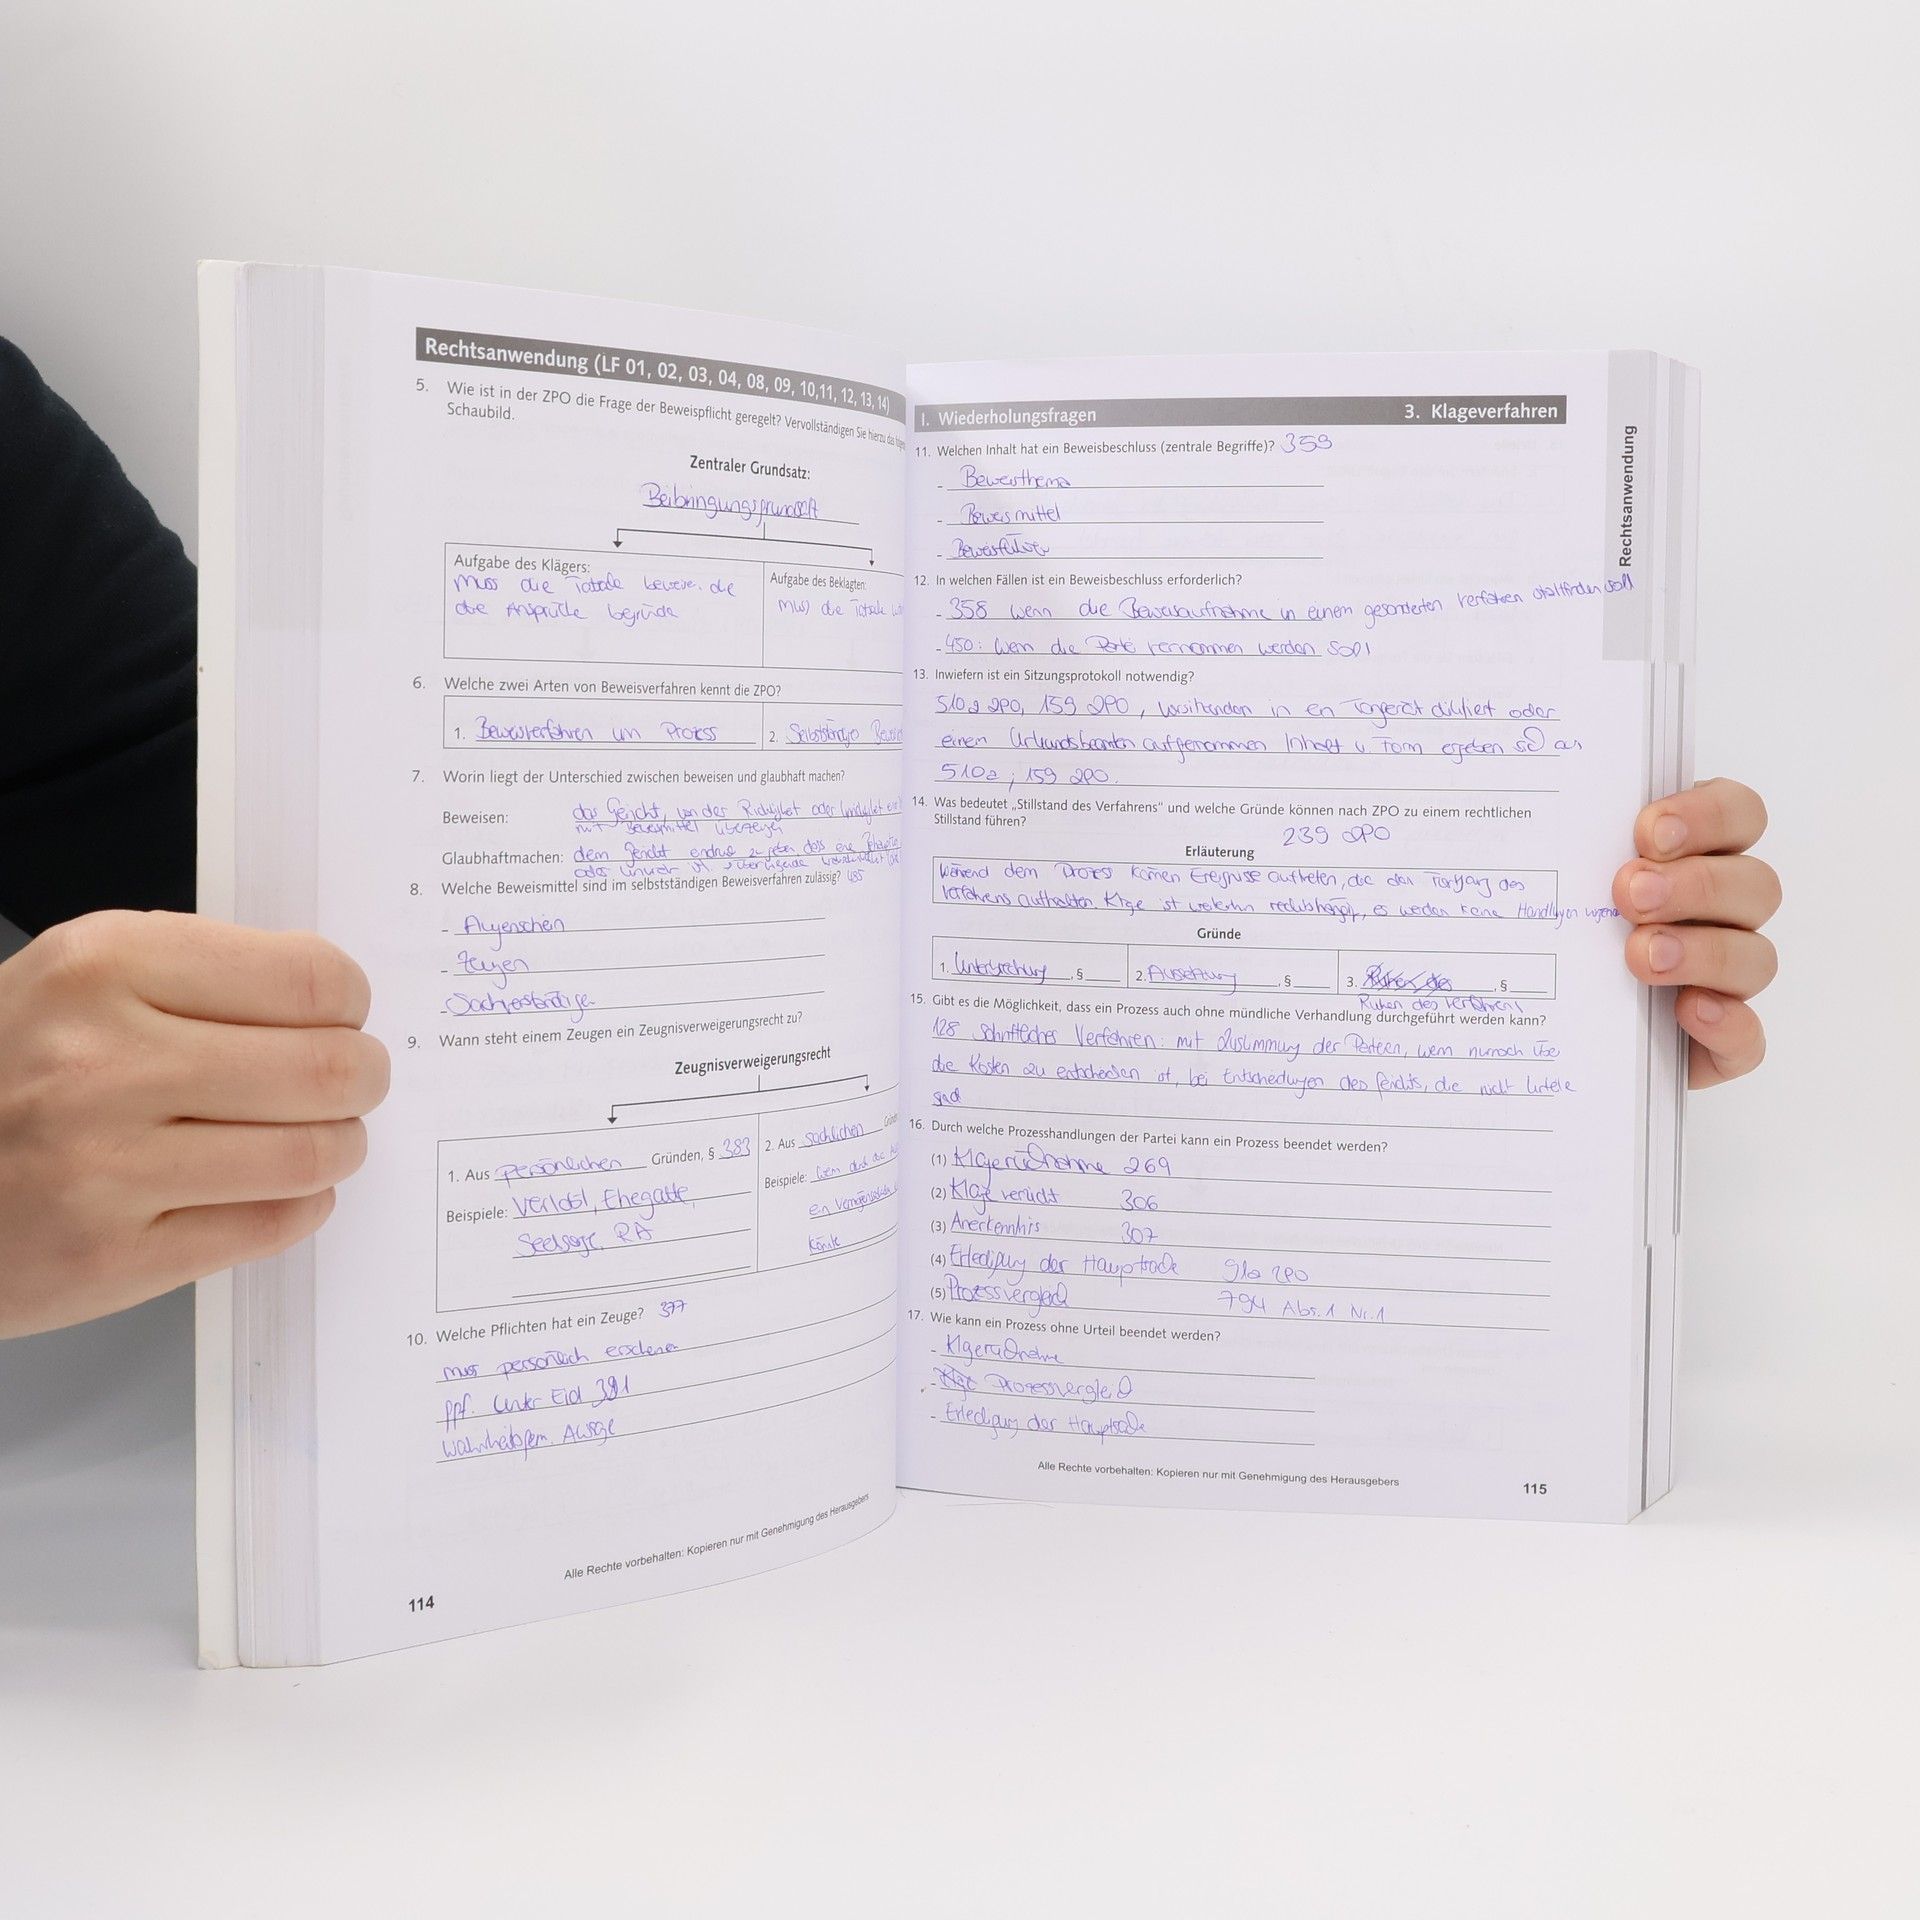 Rechtsanwendung (LF 01, 02, 03, 04, 08, 09, 10,11, 12, 13, 14)
5. Wie ist in der ZPO die Frage der Beweispflicht geregelt? Vervollständigen Sie hierzu das
Schaubild.
Zentraler Grundsatz:
Beibringungsgrundsatz
Aufgabe des Klägers:
muss die
die Ansprüche
Aufgabe des Beklagten:
muss die
6. Welche zwei Arten von Beweisverfahren kennt die ZPO?
1. Beweisverfahren im Prozess
2. Selbständige
7. Worin liegt der Unterschied zwischen beweisen und glaubhaft machen?
Beweisen: das Gericht, von der Richtigkeit oder
mit Beweismittel überzeugen
Glaubhaftmachen: dem Gericht zu geben dass eine
oder unwahr ist
8. Welche Beweismittel sind im selbstständigen Beweisverfahren zulässig? 485
- Augenschein
- Zeugen
- Sachverständige
9. Wann steht einem Zeugen ein Zeugnisverweigerungsrecht zu?
Zeugnisverweigerungsrecht
1. Aus persönlichen Gründen, § 383
Beispiele: Verlobt, Ehegatte,
Seelsorge, RA
2. Aus sachlichen
Beispiele: wenn durch
ein
könnte
10. Welche Pflichten hat ein Zeuge? 377
muss persönlich erscheinen
ggf. unter Eid 391
wahrheitsgem. Aussage
Alle Rechte vorbehalten: Kopieren nur mit Genehmigung des Herausgebers
114
I. Wiederholungsfragen 3. Klageverfahren
Rechtsanwendung
11. Welchen Inhalt hat ein Beweisbeschluss (zentrale Begriffe)? 359
- Beweisthema
- Beweismittel
- Beweisführer
12. In welchen Fällen ist ein Beweisbeschluss erforderlich?
- 358 wenn die Beweisaufnahme in einem gesonderten Verfahren stattfinden soll
- 450: wenn die Partei vernommen werden soll
13. Inwiefern ist ein Sitzungsprotokoll notwendig?
510a ZPO, 159 ZPO, Vorsitzenden in ein Tongerät diktiert oder
einem Urkundsbeamten aufgenommen Inhalt u. Form ergeben sich aus
510a; 159 ZPO.
14. Was bedeutet „Stillstand des Verfahrens“ und welche Gründe können nach ZPO zu einem rechtlichen
Stillstand führen?
239 ZPO
Erläuterung
Während dem Prozess können Ereignisse auftreten, die den Fortgang des
Verfahrens aufhalten. Klage ist weiterhin rechtshängig, es werden keine Handlungen
Gründe
1. Unterbrechung, §
2. Aussetzung, §
3. Ruhen des, §
Ruhen des Verfahrens
15. Gibt es die Möglichkeit, dass ein Prozess auch ohne mündliche Verhandlung durchgeführt werden kann?
128 schriftliches Verfahren: mit Zustimmung der Parteien, wenn nurnoch über
die Kosten zu entscheiden ist, bei Entscheidungen des Gerichts, die nicht Urteile
sind
16. Durch welche Prozesshandlungen der Partei kann ein Prozess beendet werden?
(1) Klagerücknahme 269
(2) Klageverzicht 306
(3) Anerkenntnis 307
(4) Erledigung der Hauptsache 91a ZPO
(5) Prozessvergleich 794 Abs. 1 Nr. 1
17. Wie kann ein Prozess ohne Urteil beendet werden?
- Klagerücknahme
- Prozessvergleich
- Erledigung der Hauptsache
Alle Rechte vorbehalten: Kopieren nur mit Genehmigung des Herausgebers
115